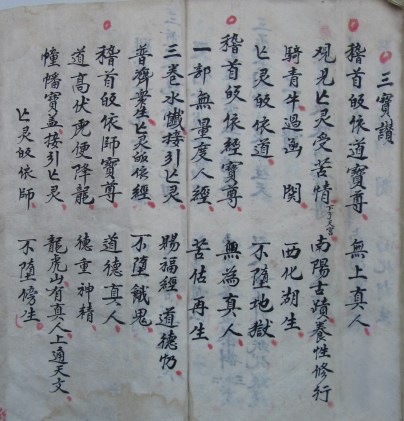 三寳讃
稽首皈依道寳尊 無上真人
观見亡灵受苦情 下了天宮 南陽古蹟養性修行
騎青牛過凾関 西化湖生
亡灵皈依道 不堕地獄
稽首皈依經寳尊 無為真人
一部無量度人經 苦佑再生
三卷水懺接引亡灵 賜福經 道德
普濟衆生亡灵皈依經 不堕餓鬼
稽首皈依師寳尊 道德真人
道高伏虎便降龍 德重神精
幢幡寳盖接引亡灵 龍虎山有真人上通天文
亡灵皈依師 不堕傍生